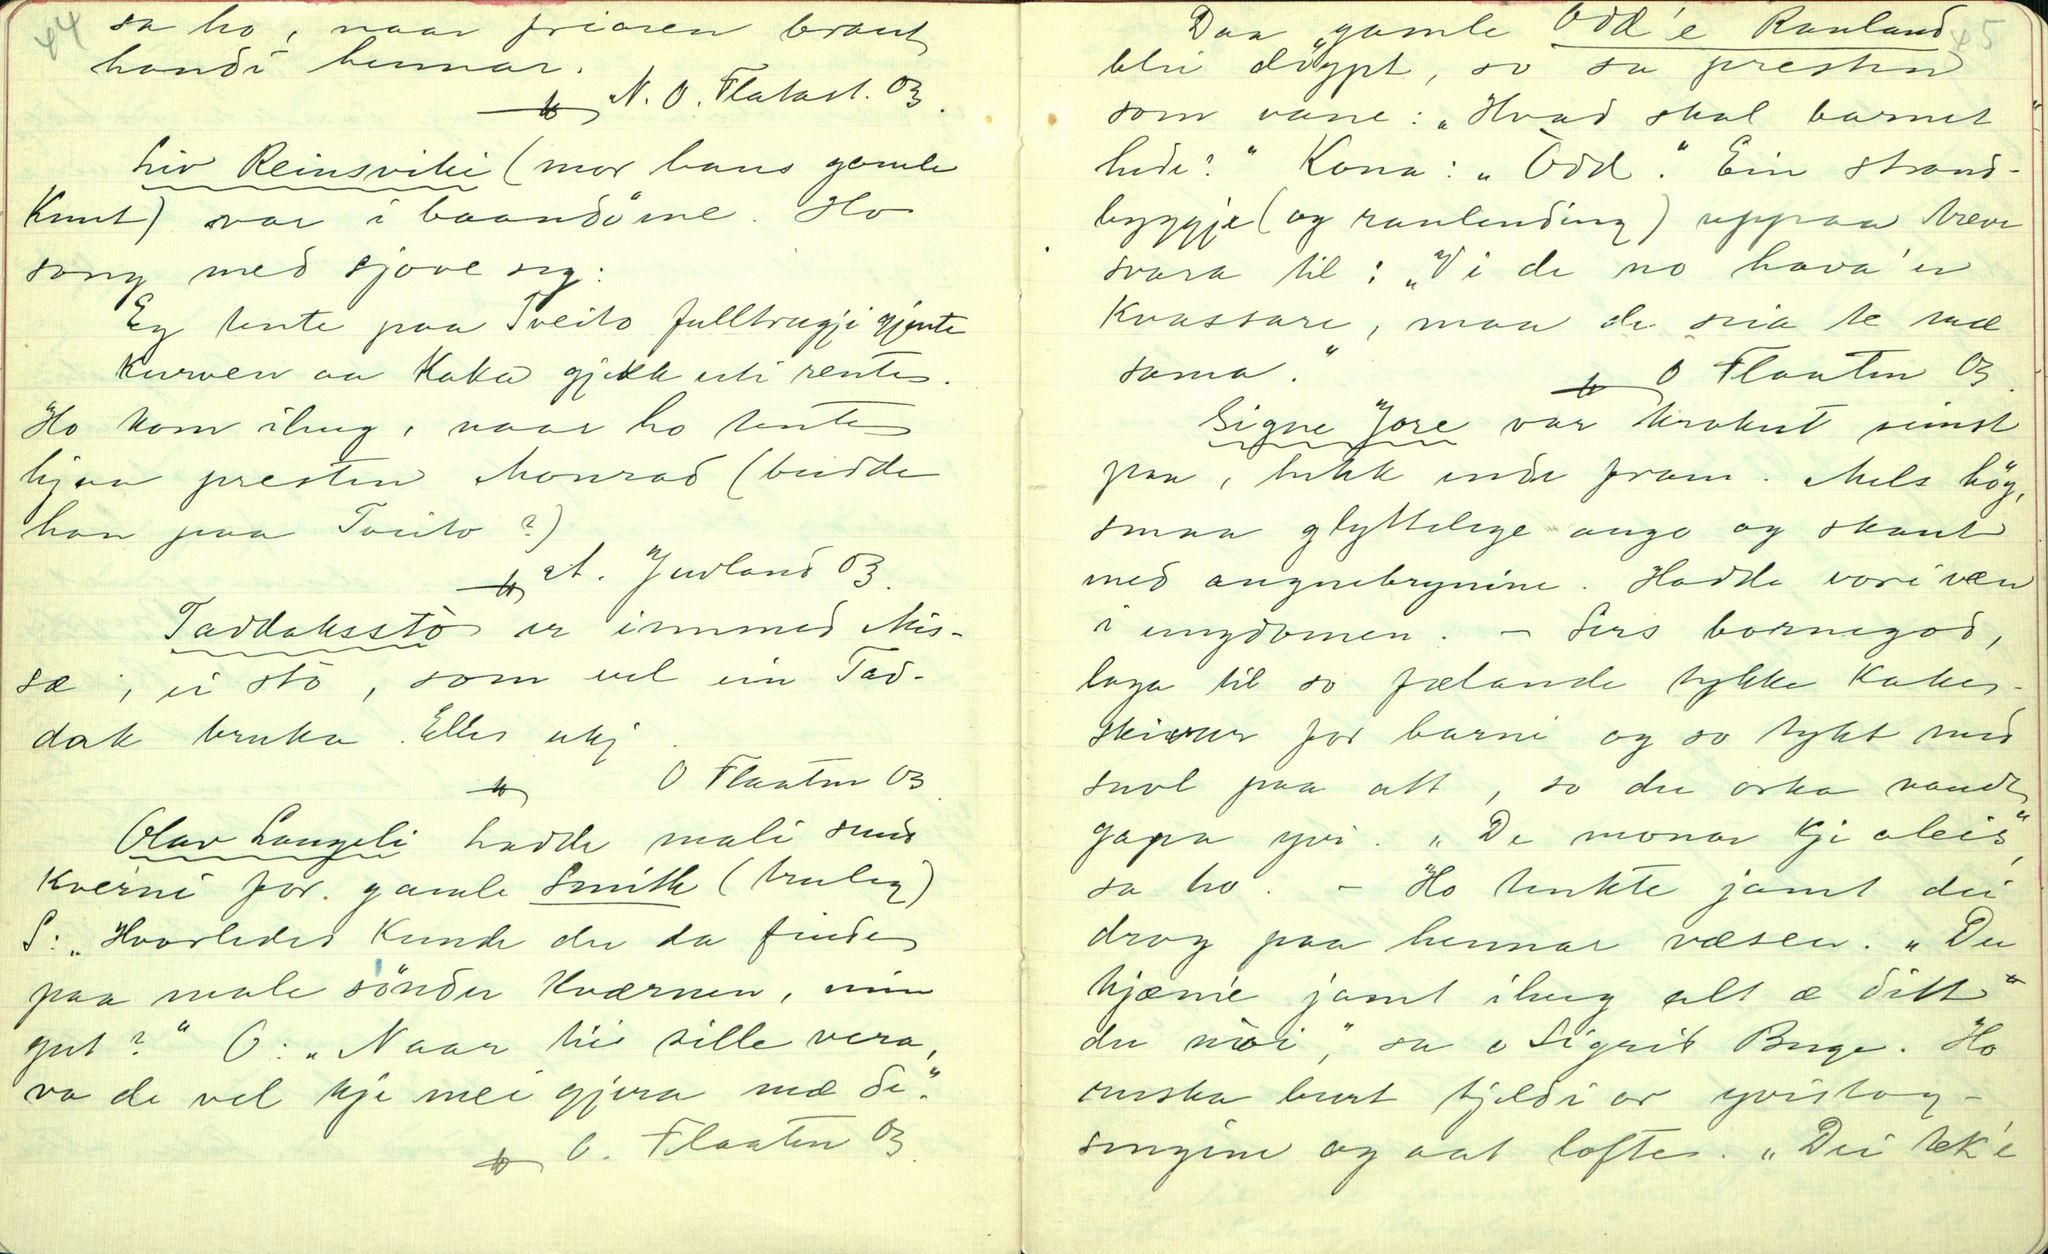 44
sa ho, naar friaren braut
handi hennar.
N. O. Flatast. 03.
Liv Reinsviki (mor hans gamle
Knut) var i baandöme. Ho
song med sjove seg:
Eg tente paa Tveito fulltrugji gjente
Kurven aa Kaka gjekk uti rente.
Ho kom ihug, naar ho tente
hjaa presten Monrad (budde
han paa Tveito?)
A. Juvland 03.
Taddaksstö er innmed Mis-
sæ, ei stö, som vel ein Tad-
dak bruka. Elles ukj.
O Flaaten 03.
Olav Langeli hadde mali sund
Kverni for gamle Smith (truleg)
S: „Hvorledes Kunde du da finde
paa male sönder Kværnen, min
gut?" O: „Naar hei sille vera,
va de vel kje mei gjera mæ de."
O. Flaaten 03.
45
Daa gamle Odd'e Rauland
blei döypt, so sa presten
som vane: „Hvad skal barnet
hede?" Kona: „Odd." Ein strand-
byggje (og raulending) uppaa treve
svara til: „Vi de no hava 'en
Kvassare, maa de snia te mæ
sama."
O Flaaten 03.
Signe Jore var krokut simst
paa, lukk ende fram. Mels hög,
smaa glyttelege augo og skaut
med augnebrynine. Hadde vori væn
i ungdomen. – Sers bornegod,
laga til so fælande tykke Kakes-
skivur for barni og so tykt med
suvl paa att, so du orka vandt
gapa yvi. „De monar kje aleis",
sa ho. – Ho tenkte jamt dei
drog paa hennar væsen. „Du
kjæme jamt ihug alt æ ditt"
du mòi," sa o Sigrid Buge. Ho
ruska burt kjeldi or yvistog-
sengine og aat lofte. „Dei tek'e